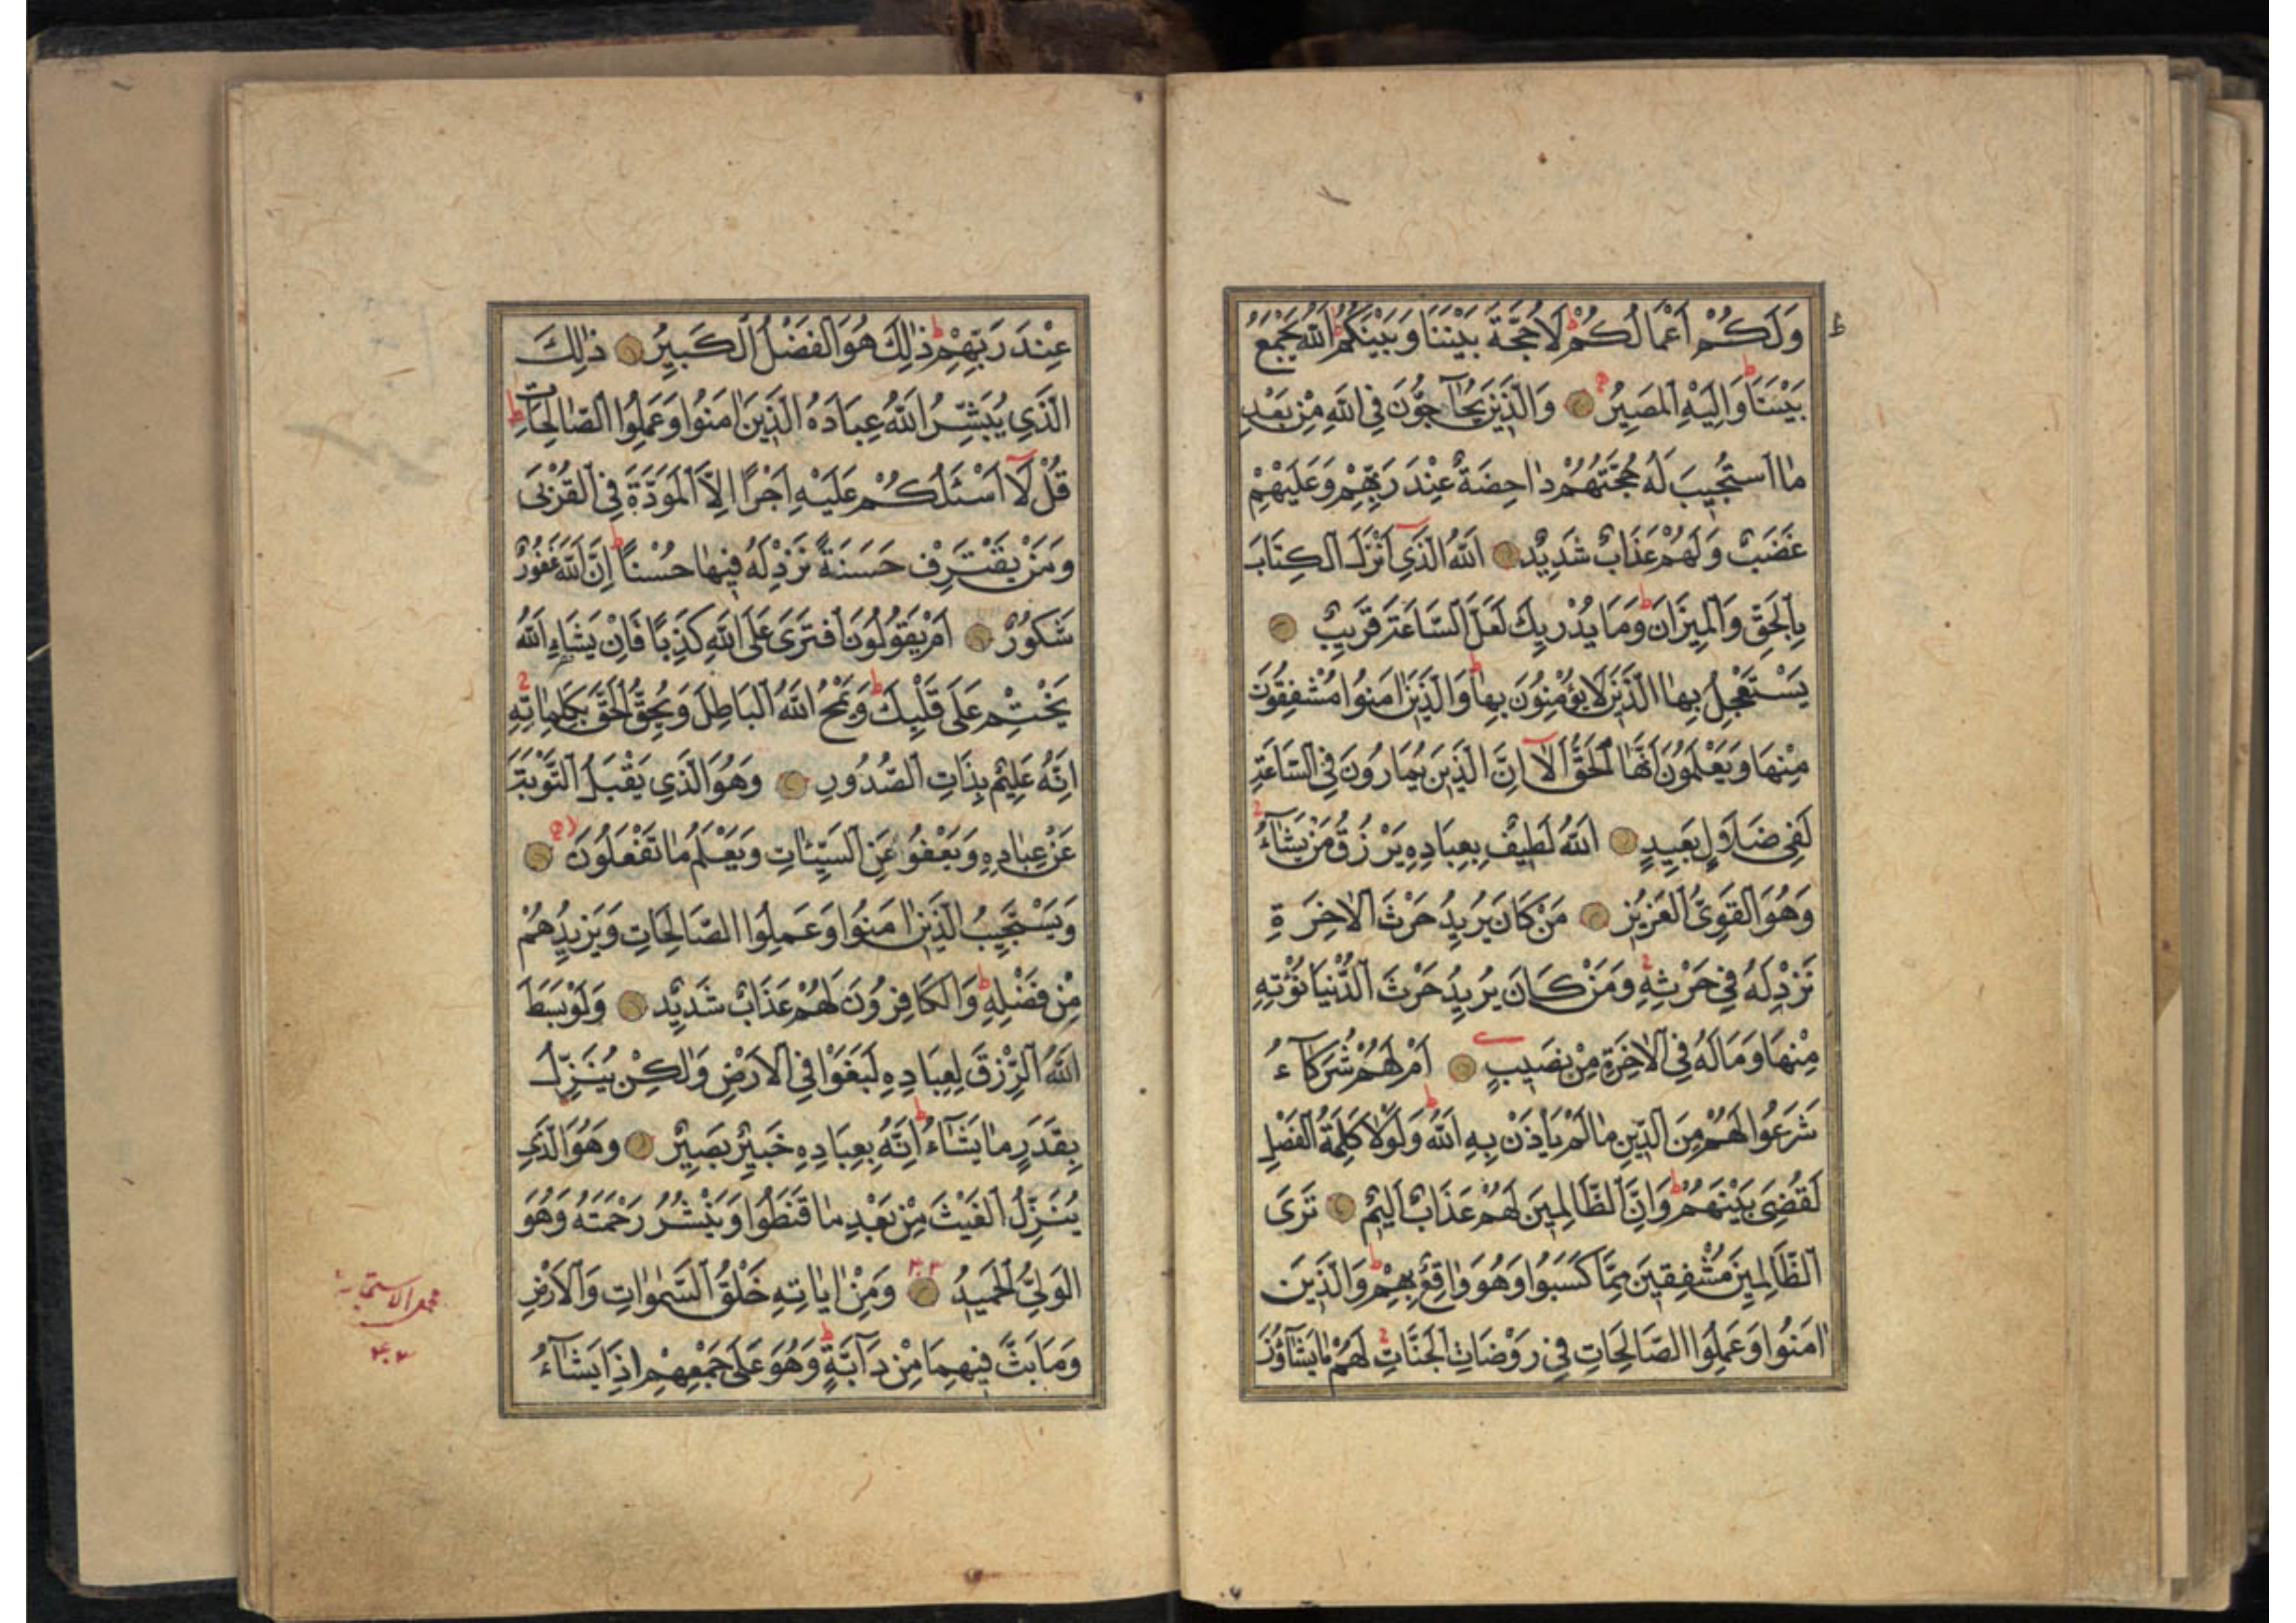 وَلَكُمْ اَعْمَالُكُمْ لَا حُجَّةَ بَيْنَنَا وَبَيْنَكُمُ اَللّٰهُ يَجْمَعُ
بَيْنَنَا وَاِلَيْهِ الْمَصِيرُ وَالَّذِينَ يُحَآجُّونَ فِي اللّٰهِ مِنْ بَعْدِ
مَا اسْتُجِيبَ لَهُ حُجَّتُهُمْ دَاحِضَةٌ عِنْدَ رَبِّهِمْ وَعَلَيْهِمْ
غَضَبٌ وَلَهُمْ عَذَابٌ شَدِيدٌ اَللّٰهُ الَّذِي اَنْزَلَ الْكِتَابَ
بِالْحَقِّ وَالْمِيزَانَ وَمَا يُدْرِيكَ لَعَلَّ السَّاعَةَ قَرِيبٌ
يَسْتَعْجِلُ بِهَا الَّذِينَ لَا يُؤْمِنُونَ بِهَا وَالَّذِينَ اٰمَنُوا مُشْفِقُونَ
مِنْهَا وَيَعْلَمُونَ اَنَّهَا الْحَقُّ اَلَا اِنَّ الَّذِينَ يُمَارُونَ فِي السَّاعَةِ
لَفِي ضَلَالٍ بَعِيدٍ اَللّٰهُ لَطِيفٌ بِعِبَادِهِ يَرْزُقُ مَنْ يَشَآءُ
وَهُوَ الْقَوِيُّ الْعَزِيزُ مَنْ كَانَ يُرِيدُ حَرْثَ الْاٰخِرَةِ
نَزِدْ لَهُ فِي حَرْثِهِ وَمَنْ كَانَ يُرِيدُ حَرْثَ الدُّنْيَا نُؤْتِهِ
مِنْهَا وَمَا لَهُ فِي الْاٰخِرَةِ مِنْ نَصِيبٍ اَمْ لَهُمْ شُرَكَآءُ
شَرَعُوا لَهُمْ مِنَ الدِّينِ مَا لَمْ يَاْذَنْ بِهِ اللّٰهُ وَلَوْلَا كَلِمَةُ الْفَصْلِ
لَقُضِيَ بَيْنَهُمْ وَاِنَّ الظَّالِمِينَ لَهُمْ عَذَابٌ اَلِيمٌ تَرَى
الظَّالِمِينَ مُشْفِقِينَ مِمَّا كَسَبُوا وَهُوَ وَاقِعٌ بِهِمْ وَالَّذِينَ
اٰمَنُوا وَعَمِلُوا الصَّالِحَاتِ فِي رَوْضَاتِ الْجَنَّاتِ لَهُمْ مَا يَشَآؤُنَ
عِنْدَ رَبِّهِمْ ذٰلِكَ هُوَ الْفَضْلُ الْكَبِيرُ ذٰلِكَ
الَّذِي يُبَشِّرُ اللّٰهُ عِبَادَهُ الَّذِينَ اٰمَنُوا وَعَمِلُوا الصَّالِحَاتِ
قُلْ لَآ اَسْئَلُكُمْ عَلَيْهِ اَجْرًا اِلَّا الْمَوَدَّةَ فِي الْقُرْبٰى
وَمَنْ يَقْتَرِفْ حَسَنَةً نَزِدْ لَهُ فِيهَا حُسْنًا اِنَّ اللّٰهَ غَفُورٌ
شَكُورٌ اَمْ يَقُولُونَ افْتَرٰى عَلَى اللّٰهِ كَذِبًا فَاِنْ يَشَاِ اللّٰهُ
يَخْتِمْ عَلٰى قَلْبِكَ وَيَمْحُ اللّٰهُ الْبَاطِلَ وَيُحِقُّ الْحَقَّ بِكَلِمَاتِهِ
اِنَّهُ عَلِيمٌ بِذَاتِ الصُّدُورِ وَهُوَ الَّذِي يَقْبَلُ التَّوْبَةَ
عَنْ عِبَادِهِ وَيَعْفُوا عَنِ السَّيِّئَاتِ وَيَعْلَمُ مَا تَفْعَلُونَ
وَيَسْتَجِيبُ الَّذِينَ اٰمَنُوا وَعَمِلُوا الصَّالِحَاتِ وَيَزِيدُهُمْ
مِنْ فَضْلِهِ وَالْكَافِرُونَ لَهُمْ عَذَابٌ شَدِيدٌ وَلَوْ بَسَطَ
اللّٰهُ الرِّزْقَ لِعِبَادِهِ لَبَغَوْا فِي الْاَرْضِ وَلٰكِنْ يُنَزِّلُ
بِقَدَرٍ مَا يَشَآءُ اِنَّهُ بِعِبَادِهِ خَبِيرٌ بَصِيرٌ وَهُوَ الَّذِي
يُنَزِّلُ الْغَيْثَ مِنْ بَعْدِ مَا قَنَطُوا وَيَنْشُرُ رَحْمَتَهُ وَهُوَ
الْوَلِيُّ الْحَمِيدُ وَمِنْ اٰيَاتِهِ خَلْقُ السَّمٰوَاتِ وَالْاَرْضِ
وَمَا بَثَّ فِيهِمَا مِنْ دَآبَّةٍ وَهُوَ عَلٰى جَمْعِهِمْ اِذَا يَشَآءُ